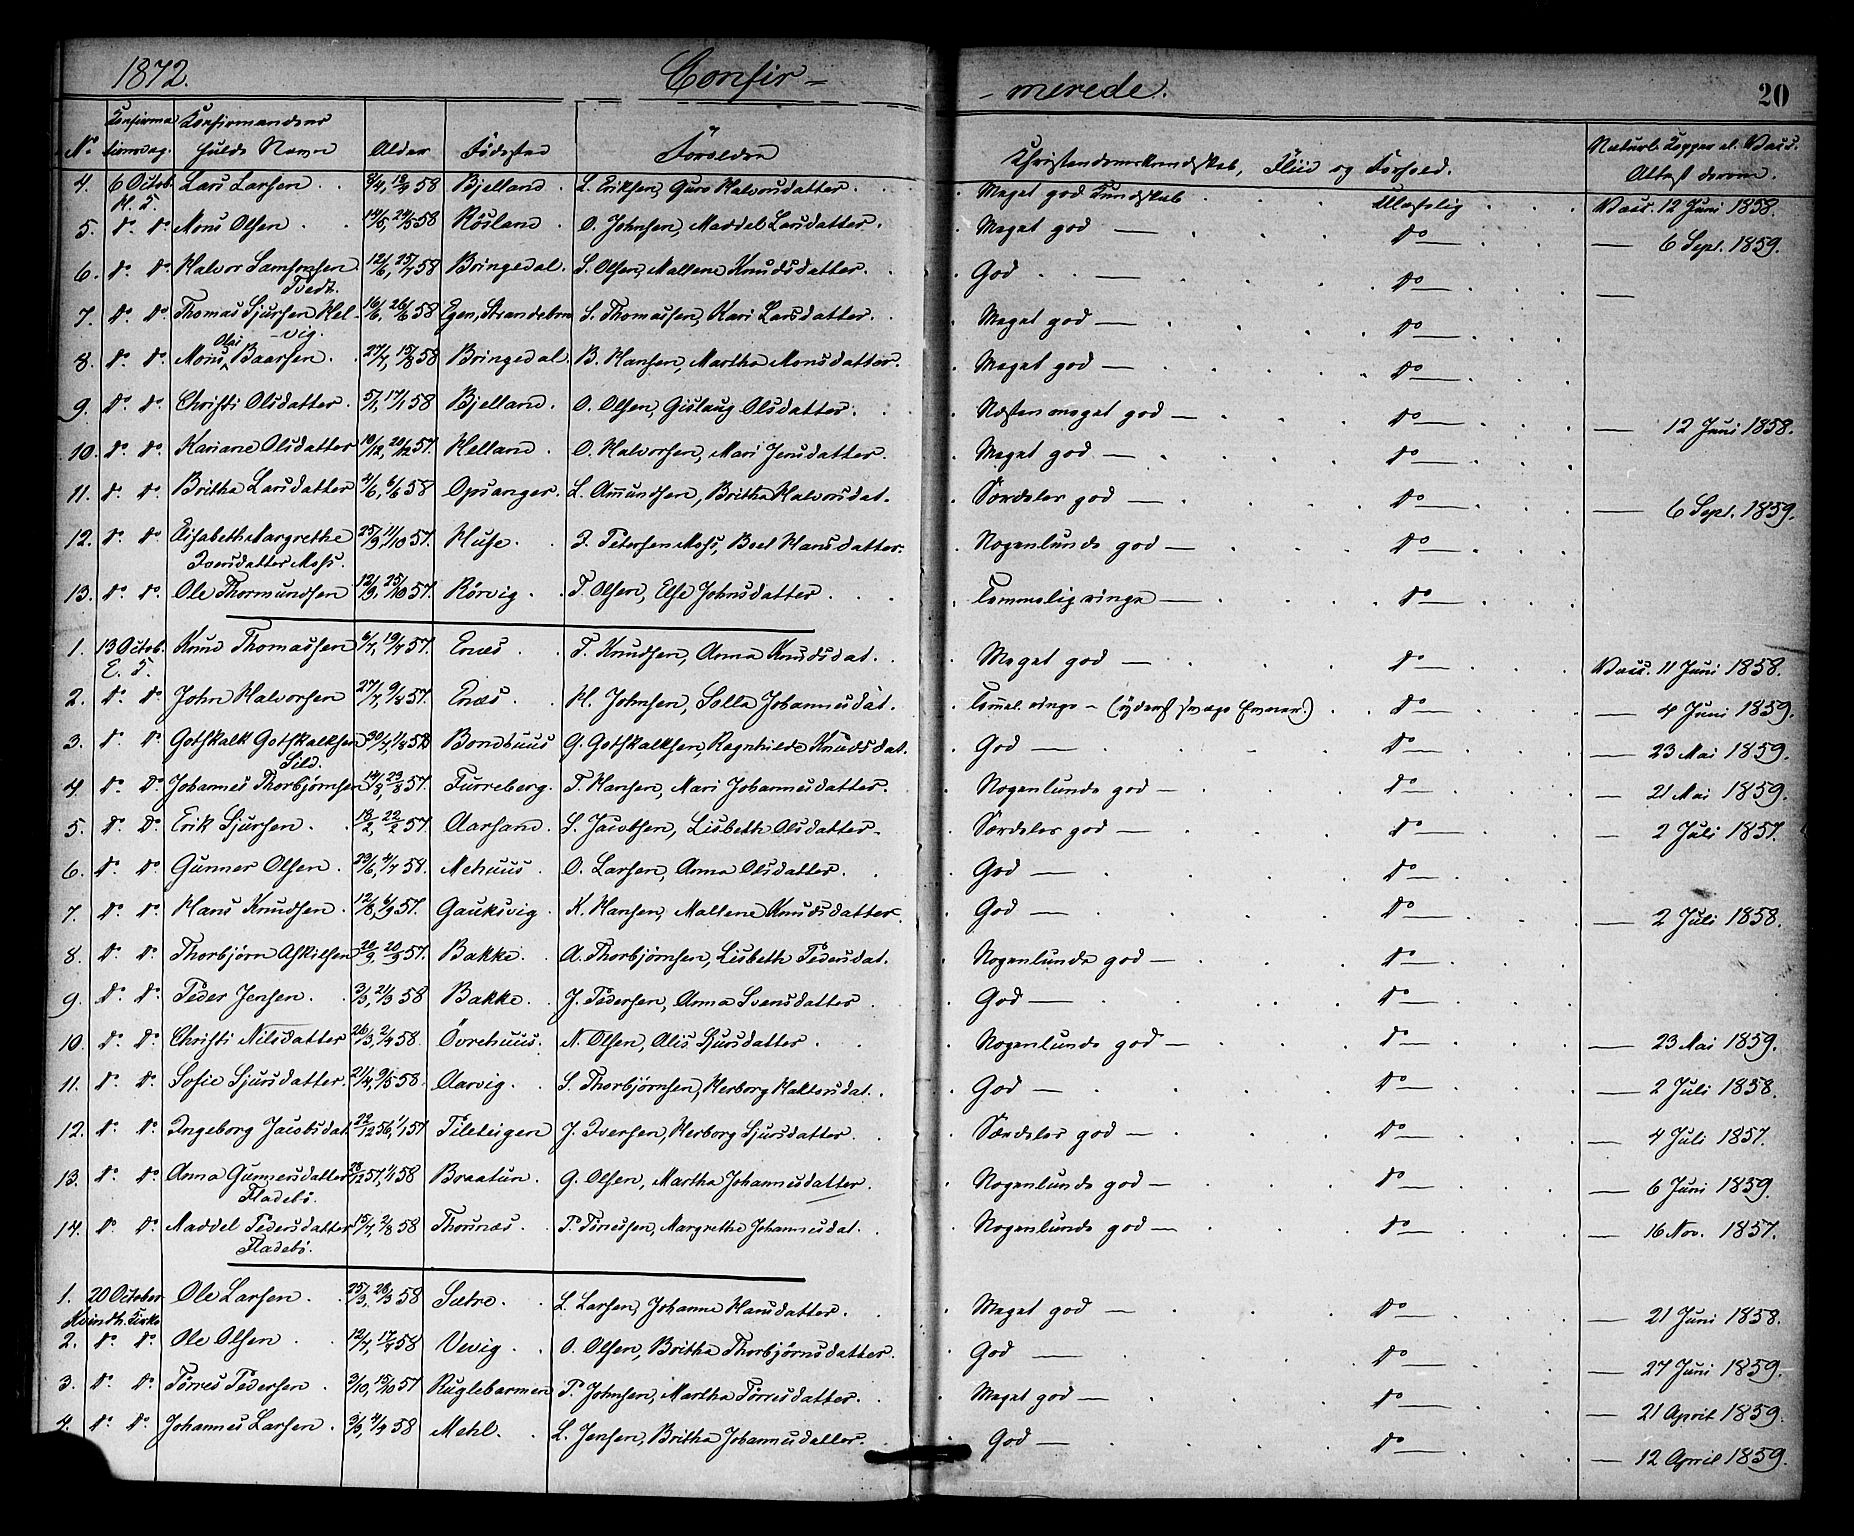 1872. Confir- -merede. 20
No Konfirmationsdag. Konfirmandens fulde Navn Alder Födested Forældre Christendomskundskab, Flid og Forhold. Naturl. Kopper el. Vacc. Attest derom.
4. 6 Octob. H. S. Lars Larsen 58 Bjelland L. Eriksen, Guro Halvorsdatter Meget god Kundskab Ulastelig Vacc. 12 Juni 1858.
5. do do Mons Olsen 14/5, 24/5 58 Rösland O. Johnsen, Maddel Larsdatter. Meget god — do — — 6 Sept. 1859.
6. do do Halvor Samsonsen Tvedt. 58 Bringedal. S. Olsen, Mallene Knudsdatter. God — do — —
7. do do Thomas Sjursen Helvig. 16/6, 26/6 58 Egen, Strandebm S. Thomassen, Kari Larsdatter. Meget god — do —
8. do do Mons Olai Baarsen. 27/7, 15/8 58 Bringedal. B. Hansen, Martha Monsdatter. Meget god — do —
9. do do Christi Olsdatter. 5/1, 17/1 58 Bjelland. O. Olsen, Gislaug Olsdatter. Næsten meget god — do — — 12 Juni 1858.
10. do do Kariane Olsdatter 10/12, 20/12 57. Helland. O. Halvorsen, Mari Jensdatter. Meget god — do —
11. do do Britha Larsdatter 58 Opsanger. L. Amundsen, Britha Halvorsdat. Særdeles god — do — — 6 Sept. 1859.
12. do do Elisabeth Margrethe Iversdatter Moss. 25/9, 11/10 57. Huse. I. Petersen Moss, Boel Hansdatter. Nogenlunde god — do —
13. do do Ole Thormundsen 12/9, 25/10 57. Rörvig. T. Olsen, Else Johnsdatter Temmelig ringe — do —
1. 13 Octob. E. S. Knud Thomassen 6/7, 19/7 57. Enæs. T. Knudsen, Anna Knudsdat. Meget god — do — Vacc. 11 Juni 1858.
2. do do John Halvorsen 27/7, 9/8 57. Enæs. H. Johnsen, Solla Johannesdat. Temmel. ringe — (yderst svage Evner.) do — — 4 Juni 1859.
3. do do Gotskalk Gotskalksen Sild. 58 Bondhuus G. Gotskalksen, Ragnhilde Knudsdat. God — do — — 23 Mai 1859.
4. do do Johannes Thorbjørnsen 57. Furreberg. T. Hansen, Mari Johannesdatter. Nogenlunde god — do — — 21 Mai 1859.
5. do do Erik Sjursen. 18/2, 22/2 57. Aarsand. S. Jacobsen, Lisbeth Olsdatter. Særdeles god — do — — 2 Juli 1857.
6. do do Gunner Olsen. 58. Mehuus O. Larsen, Anna Olsdatter. God — do —
7. do do Hans Knudsen. 12/8, 6/9 57. Gauksvig. K. Hansen, Mallene Knudsdatter. God — do — — 2 Juli 1858.
8. do do Thorbjørn Askilsen 57. Bakke. A. Thorbjørnsen, Lisbeth Pedersdat. Nogenlunde god — do —
9. do do Peder Jensen. 3/3, 21/3 58 Bakke. J. Pedersen, Anna Svensdatter God — do —
10. do do Christi Nilsdatter 58. Övrehuus. N. Olsen, Alis Sjursdatter. Nogenlunde god — do — — 23 Mai 1859.
11. do do Sofie Sjursdatter. 21/4, 9/5 58. Aarvig. S. Thorbjørnsen, Herborg Haktorsdat. God — do — — 2 Juli 1858.
12. do do Ingeborg Jacobsdat. 22/12 56, 1/1 57 Pileteigen J. Iversen, Herborg Sjursdatter. Særdeles god — do — — 4 Juli 1857.
13. do do Anna Gunnersdatter Fladebö. 28/12 57, 1/1 58 Braatun. G. Olsen, Martha Johannesdatter. Nogenlunde god — do — — 6 Juni 1859.
14. do do Maddel Pedersdatter Fladebö. 15/7, 2/8 58 Thounæs. P. Tönnesen, Margrethe Johannesdat. Nogenlunde god — do — — 16 Nov. 1857.
1. 20 October Kvindh. Kirke Ole Larsen. 25/3, 28/3 58 Sætre. L. Larsen, Johanne Hansdatter. Meget god — do — — 21 Juni 1858.
2. do do Ole Olsen 58 Uvig. O. Olsen, Britha Thorbjörnsdatter. God — do — — 27 Juni 1859.
3. do do Tørres Pedersen. 3/10, 15/10 57 Ruglebarmen P. Johnsen, Martha Tørresdatter. Meget god — do — — 21 April 1859.
4. do do Johannes Larsen. 58 Mehl. L. Jensen, Britha Johannesdatter. God — do — — 12 April 1859.